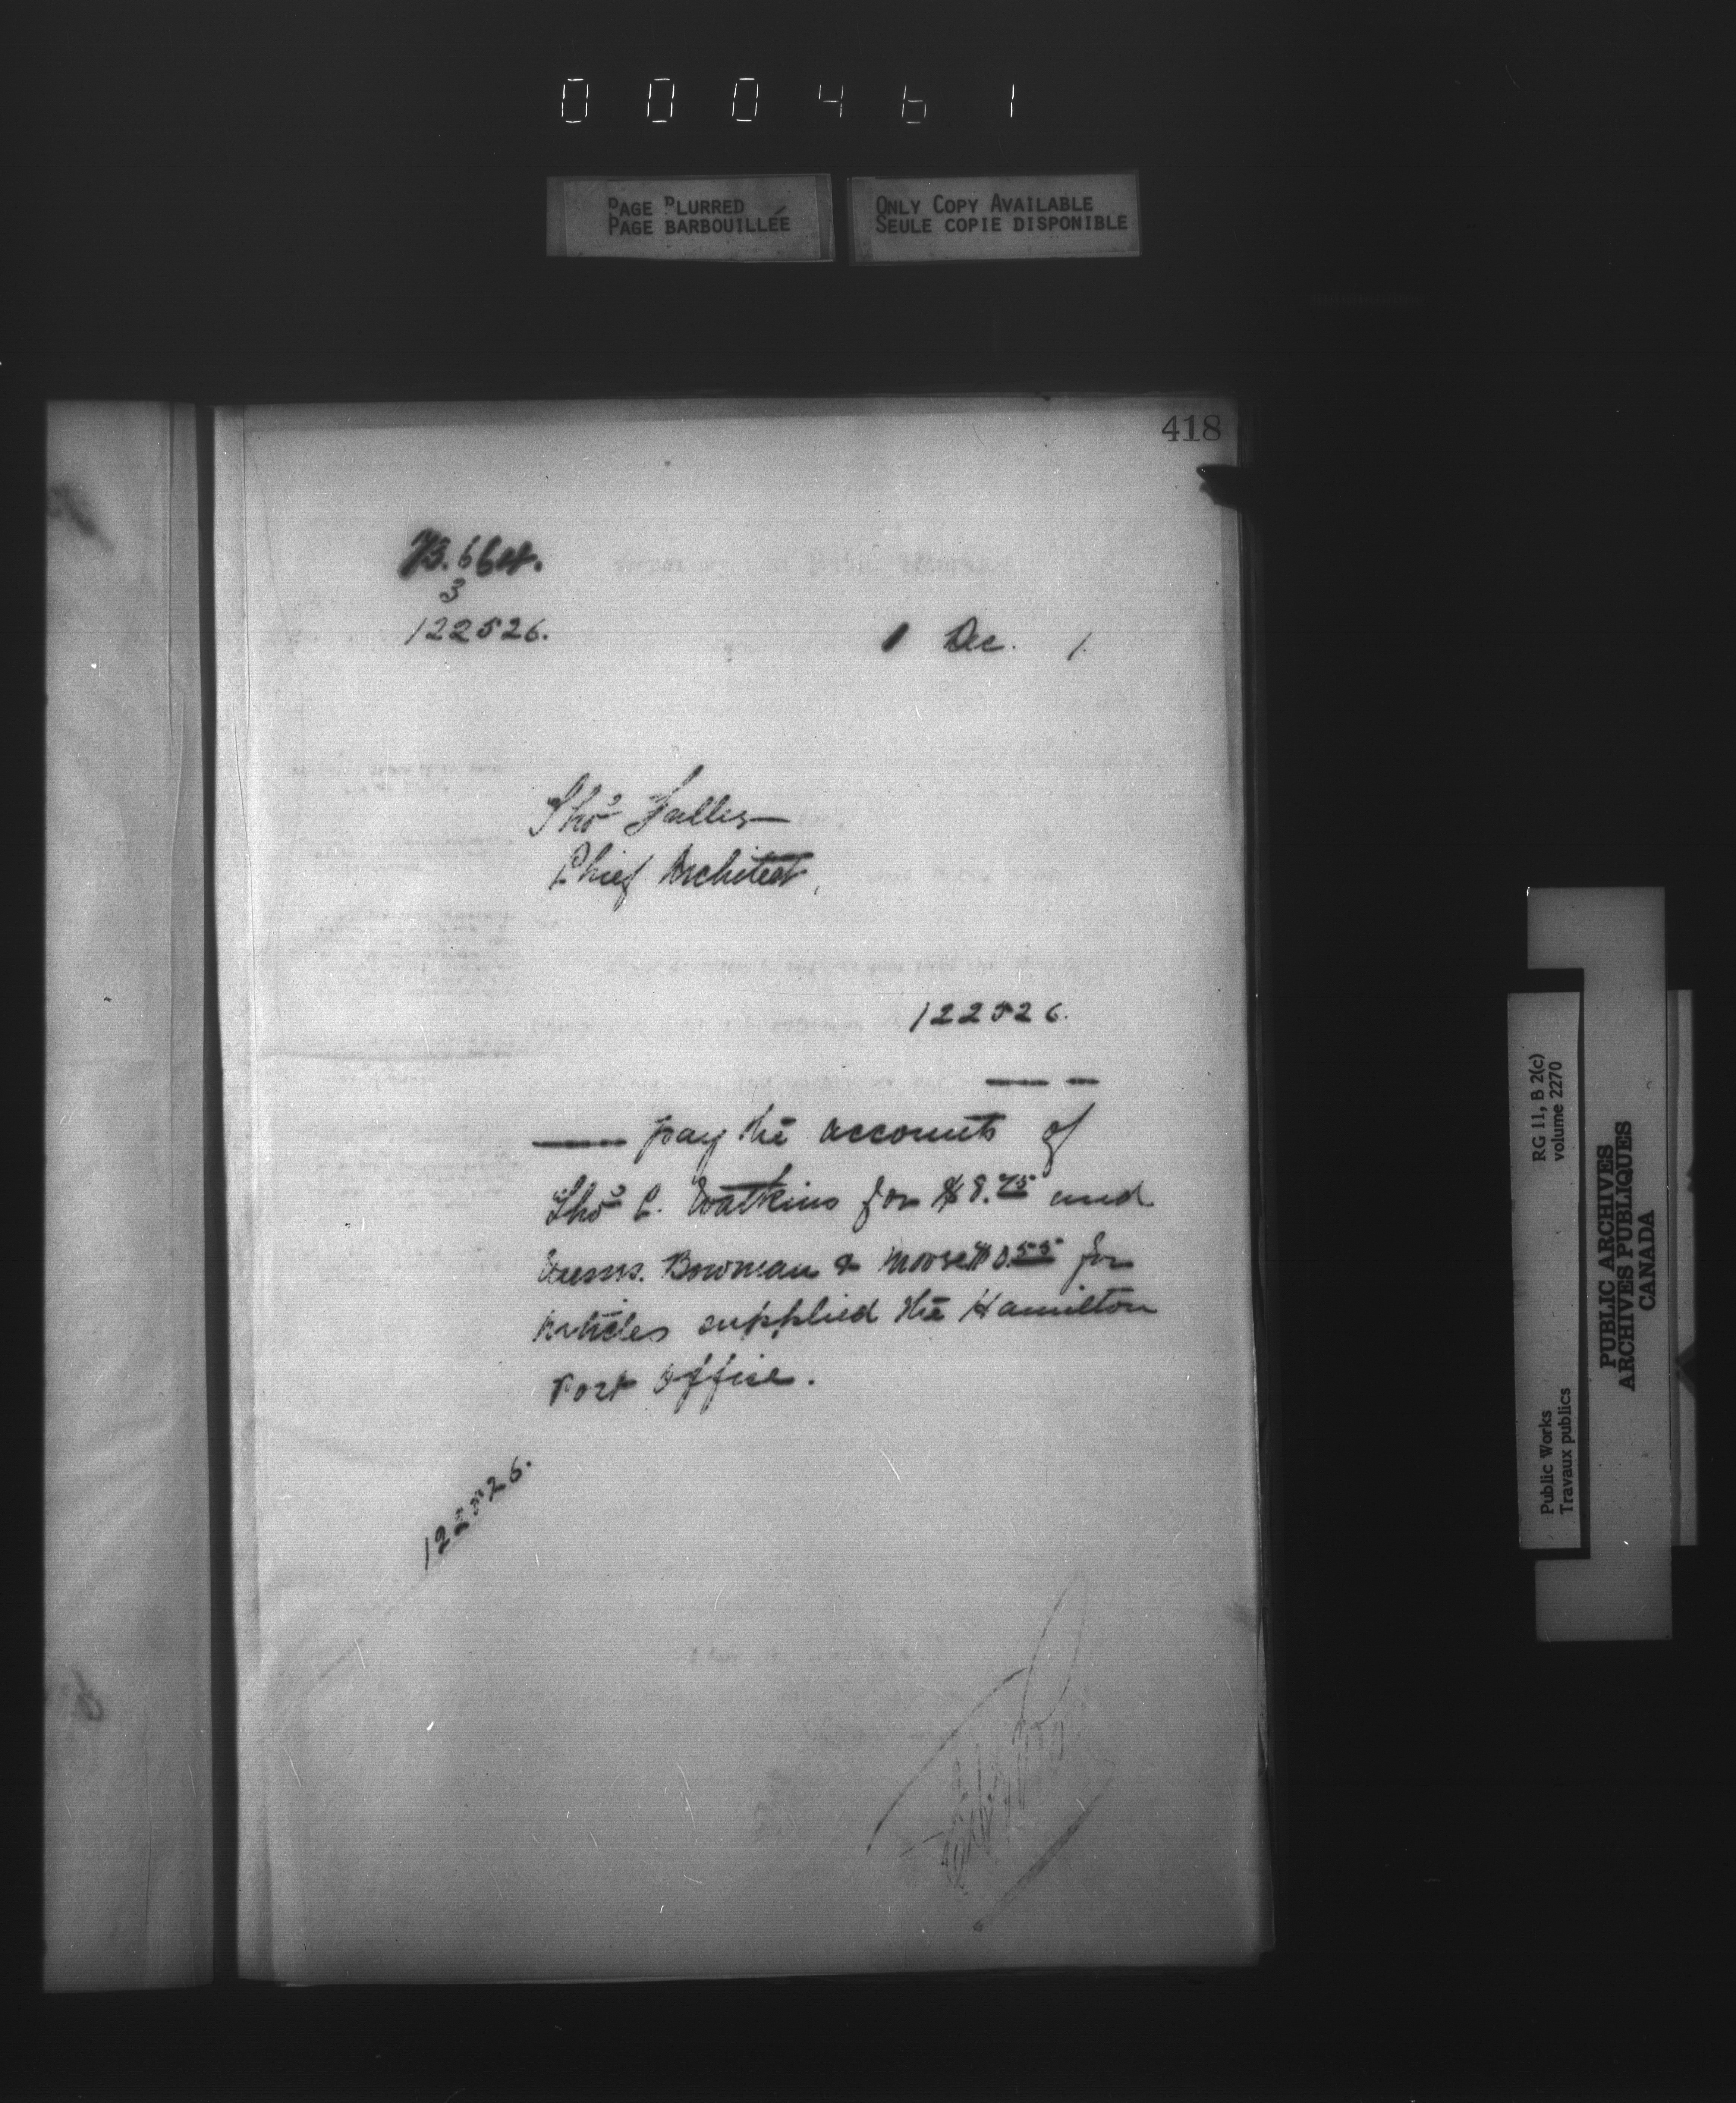 000461
PAGE BLURRED
PAGE BARBOUILLÉE
ONLY COPY AVAILABLE
SEULE COPIE DISPONIBLE
418
3
122526.
1 Dec. 1.
Thos Fuller
Chief Architect,
122526.
pay the accounts of
Thos C. Watkins for $8.75 and
Messrs. Bowman & Moore for
articles supplied the Hamilton
Post Office.
122526.
RG 11, B 2(c)
volume 2270
Public Works
Travaux publics
PUBLIC ARCHIVES
ARCHIVES PUBLIQUES
CANADA